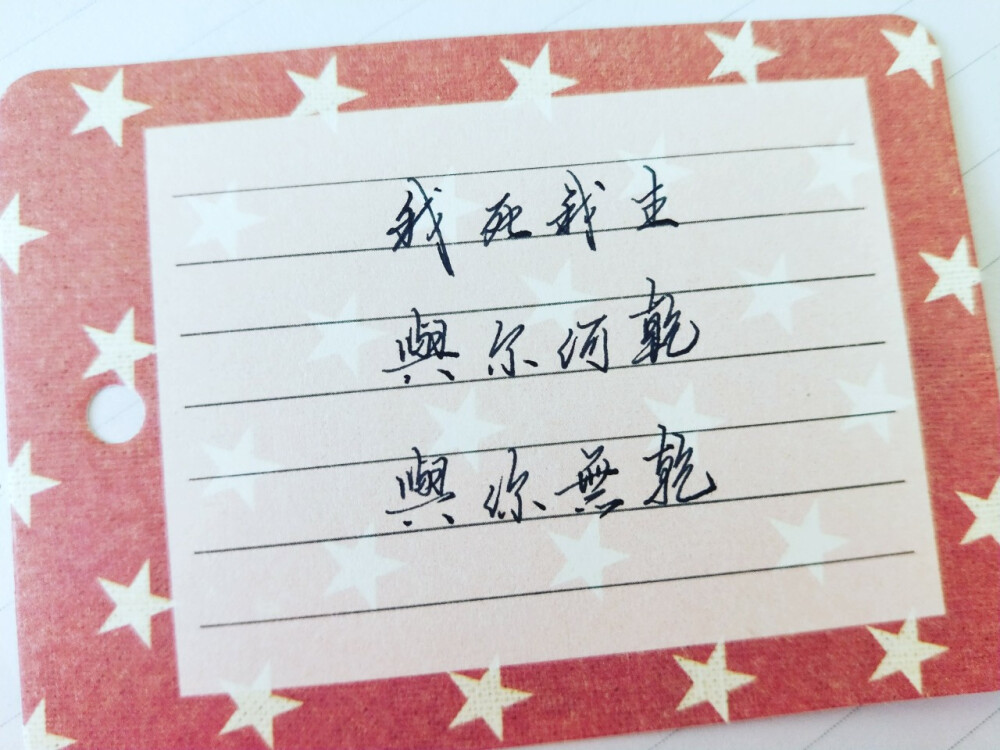 我死我生
與尔何乾
與你無乾